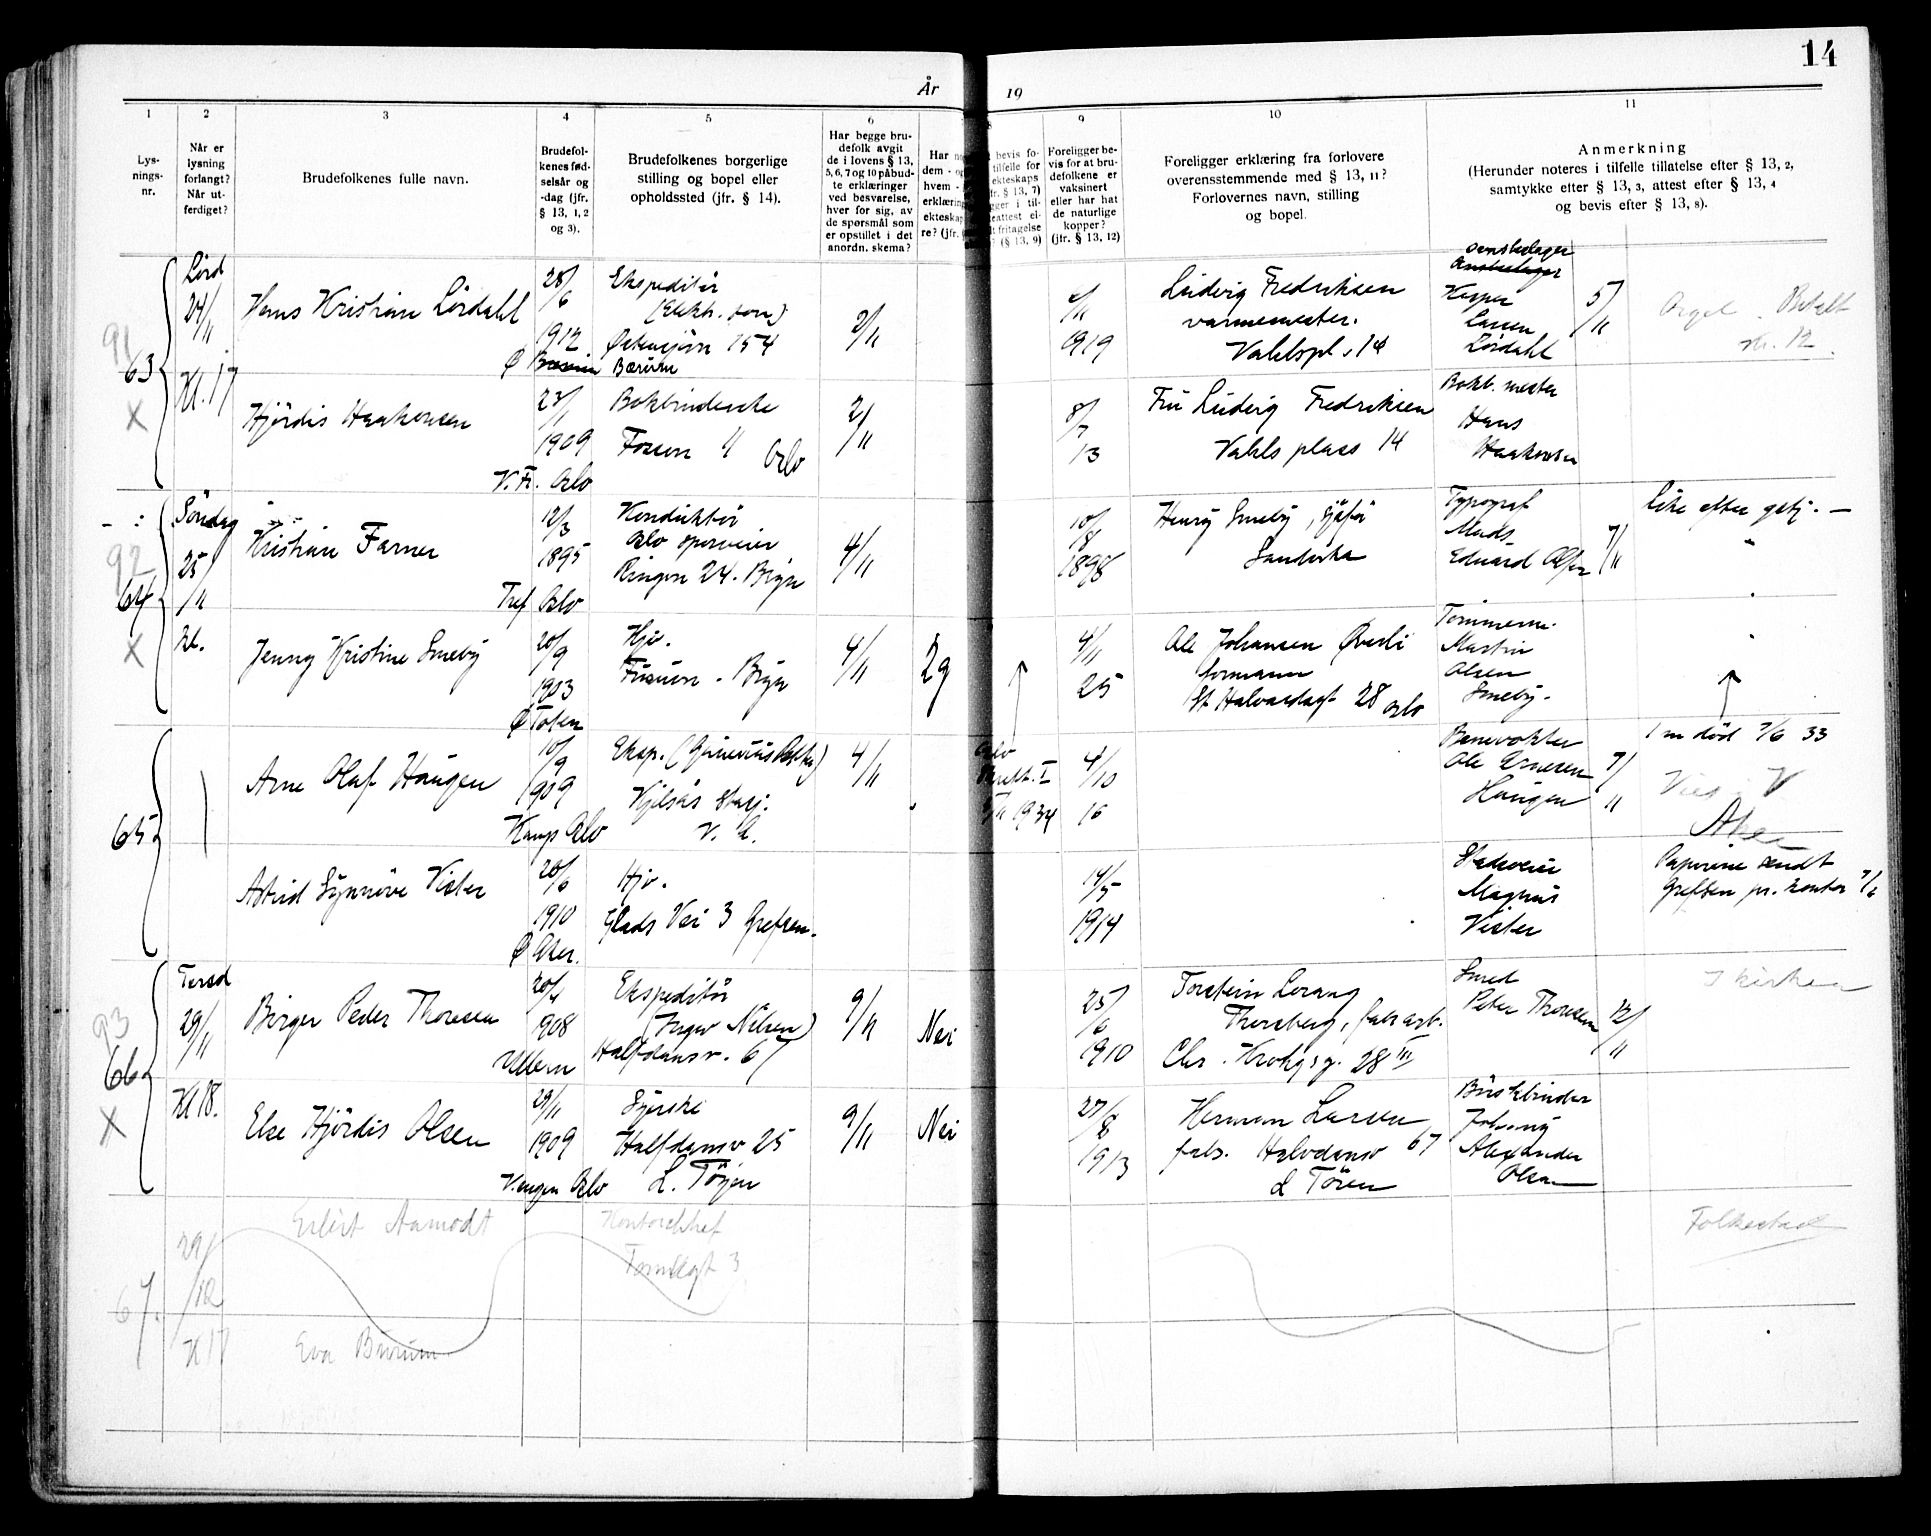 14
År 19
1 2 3 4 5 6 9 10 11
Lys-
nings-
nr.
Når er
lysning
forlangt?
Når ut-
ferdiget?
Brudefolkenes fulle navn.
Brudefol-
kenes fød-
selsår og
-dag (jfr.
§ 13, 1, 2
og 3).
Brudefolkenes borgerlige
stilling og bopel eller
opholdssted (jfr. § 14).
Har begge bru-
defolk avgit
de i lovens § 13,
5, 6, 7 og 10 påbud-
te erklæringer
ved besvarelse,
hver for sig, av
de spørsmål som
er opstillet i det
anordn. skema?
Foreligger be-
vis for at bru-
defolkene er
vaksinert
eller har hat
de naturlige
kopper?
(jfr. § 13, 12)
Foreligger erklæring fra forlovere
overensstemmende med § 13, 11?
Forlovernes navn, stilling
og bopel.
Anmerkning
(Herunder noteres i tilfelle tillatelse efter § 13, 2,
samtykke efter § 13, 3, attest efter § 13, 4
og bevis efter § 13, 8).
91
63
X
Lørd
24/11
Kl. 17
Hans Kristian Lørdahl
28/6
1912
Ø Bærum
Ekspeditør
Østensjøvn 154
2/11
2/11
1919
Ludvig Fredriksen
varmemester.
Vahlspl. 14
Kasper
Larsen
Lørdahl
5/11
Orgel. Betalt
kr. 12.
Hjördis Haakonsen
23/1
1909
V. Fr. Oslo
Bokbinderske
Fossvn 4 Oslo
2/11
8/7
13
Fru Ludvig Fredriksen
Vahls plass 14
Bokb. mester
Hans
Haakonsen
92
64
X
Søndag
25/11
kl.
Kristian Farner
12/3
1895
Tref Oslo
Konduktør
Oslo sporveier
Ringvn 24. Bryn
4/11
10/8
1898
Henry Smeby, sjåfør
Sandvika
Typograf
Mads
Edvard Olsen
7/11
like efter gstj. —
Jenny Kristine Smeby
20/9
1903
Ø Toten
Hjv.
. Bryn
4/11
2g
4/11
25
Ole Johansen Øverli
formann
St. Halvardsgt 28 Oslo
Tømmerm.
Martin
Olsen
Smeby.
65
Arne Olaf Haugen
10/9
1909
Kamp Oslo
Eksp.
Kjelsås stasj.
V. A.
4/11
Oslo
1934
4/10
16
Ole Arnesen
Haugen
7/11
1 m død 7/6 33
Astrid Synnøve Vister
20/6
1910
Ø Aker.
Hjv.
Glads Vei 3 Grefsen.
14/5
1914
Magnus
Vister
Papirene sendt
Grefsen pr. kontor 7/6
93
66
X
Torsd
29/11
Kl 18.
Birger Peder Thoresen
20/4
1908
Ullern
Ekspeditør
(Ingw Nilsen)
Halfdansv. 67
9/11
Nei
25/6
1910
Torstein Lorang
Thorsberg, fabr.arb.
Chr. Krohgsg. 28 III
Smed
Peter Thoresen
12/11
I kirken
Else Hjördis Olsen
29/11
1909
Vangen Oslo
Syerske
Halfdansv 25
L. Tøyen
9/11
Nei
27/8
1913
Herman Larsen
fabr. Halvdansv 67
L Tøien
Børstebinder
Johnny
Alexander
Olsen
67.
29/12
Kl 17
Eilert Aamodt
Kontorchef
3
Folkestad
Eva Bærum